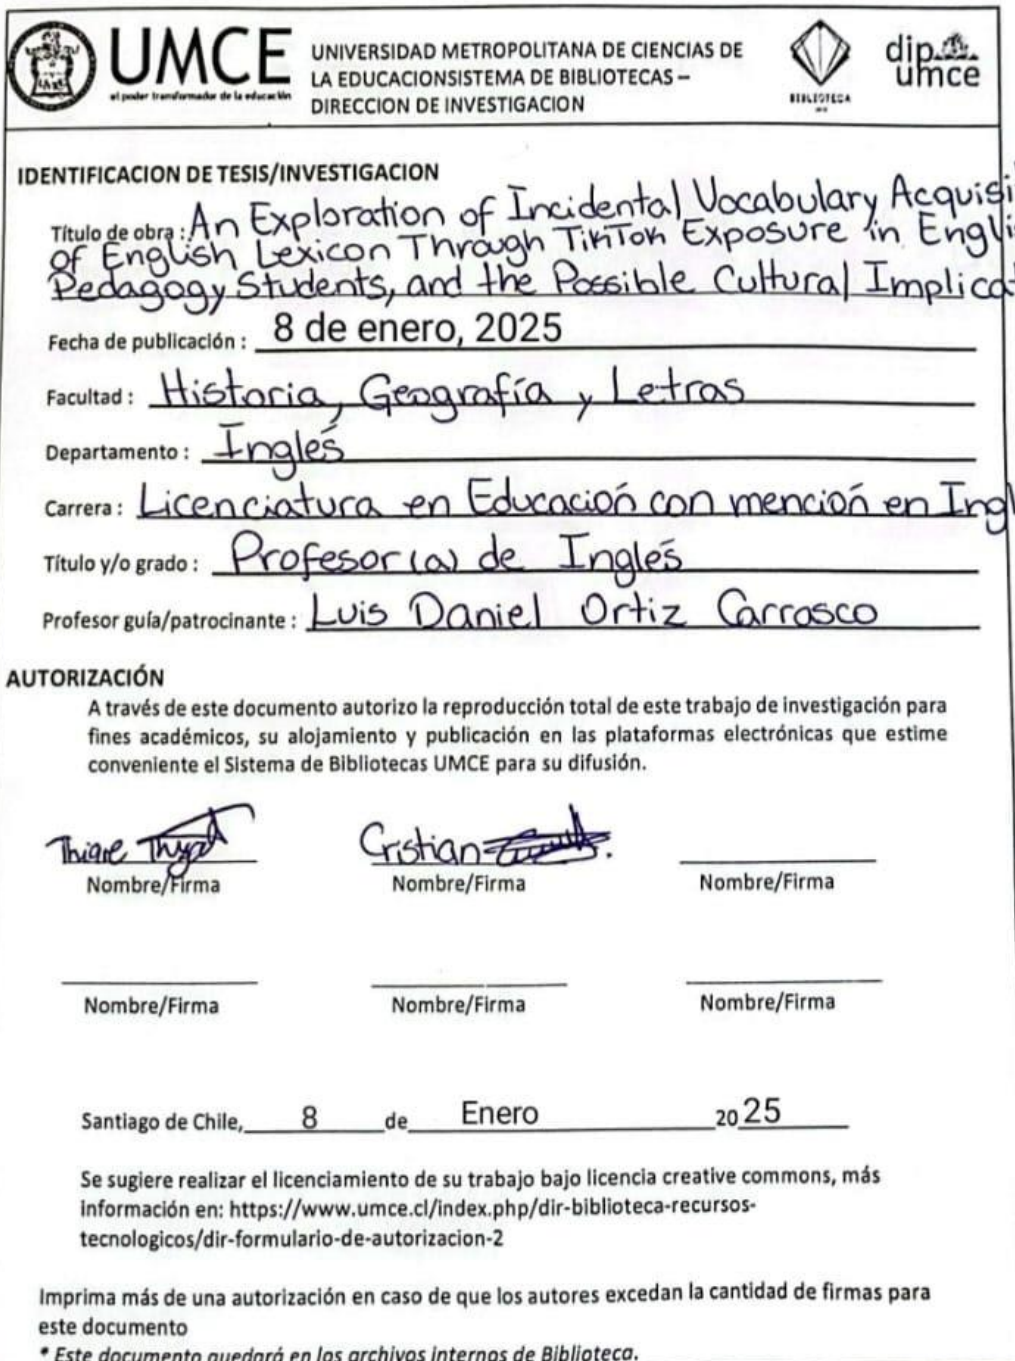 UMCE
el poder transformador de la educación
UNIVERSIDAD METROPOLITANA DE CIENCIAS DE
LA EDUCACIONSISTEMA DE BIBLIOTECAS –
DIRECCION DE INVESTIGACION
BIBLIOTECA
dip.
umce
IDENTIFICACION DE TESIS/INVESTIGACION
Título de obra : An Exploration of Incidental Vocabulary Acquisi
of English Lexicon Through TikTok Exposure in Engli
Pedagogy Students, and the Possible Cultural Implicat
Fecha de publicación : 8 de enero, 2025
Facultad : Historia, Geografía y Letras
Departamento : Inglés
Carrera : Licenciatura en Educación con mención en Ingl
Título y/o grado : Profesor(a) de Inglés
Profesor guía/patrocinante : Luis Daniel Ortiz Carrasco
AUTORIZACIÓN
A través de este documento autorizo la reproducción total de este trabajo de investigación para
fines académicos, su alojamiento y publicación en las plataformas electrónicas que estime
conveniente el Sistema de Bibliotecas UMCE para su difusión.
Thiare Cristian
Nombre/Firma Nombre/Firma Nombre/Firma
Nombre/Firma Nombre/Firma Nombre/Firma
Santiago de Chile, 8 de Enero 2025
Se sugiere realizar el licenciamiento de su trabajo bajo licencia creative commons, más
información en: https://www.umce.cl/index.php/dir-biblioteca-recursos-
tecnologicos/dir-formulario-de-autorizacion-2
Imprima más de una autorización en caso de que los autores excedan la cantidad de firmas para
este documento
* Este documento quedará en los archivos internos de Biblioteca.